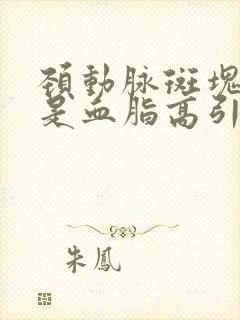 頚動脉斑塊
是血脂高引
朱鳳